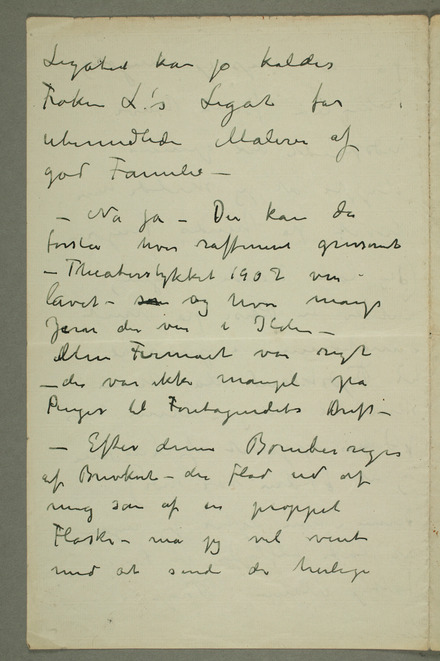 Legatet kan jo kaldes
Frøken L.'s Legat for
ubemidlede Malere af
god Familie –
– Nå ja – Du kan da
forstå hvor raffineret grusomt
– Theaterstykket 1902 var
lavet – og hvor mange
Jern der var i Ilden –
Men Firmaet var rigt
– der var ikke mangel på
Penger til Foretagendets Drift –
– Efter denne Bombe
af – der flød ud af
mig som af en proppet
Flaske – må jeg vel vente
med at sende de herlige